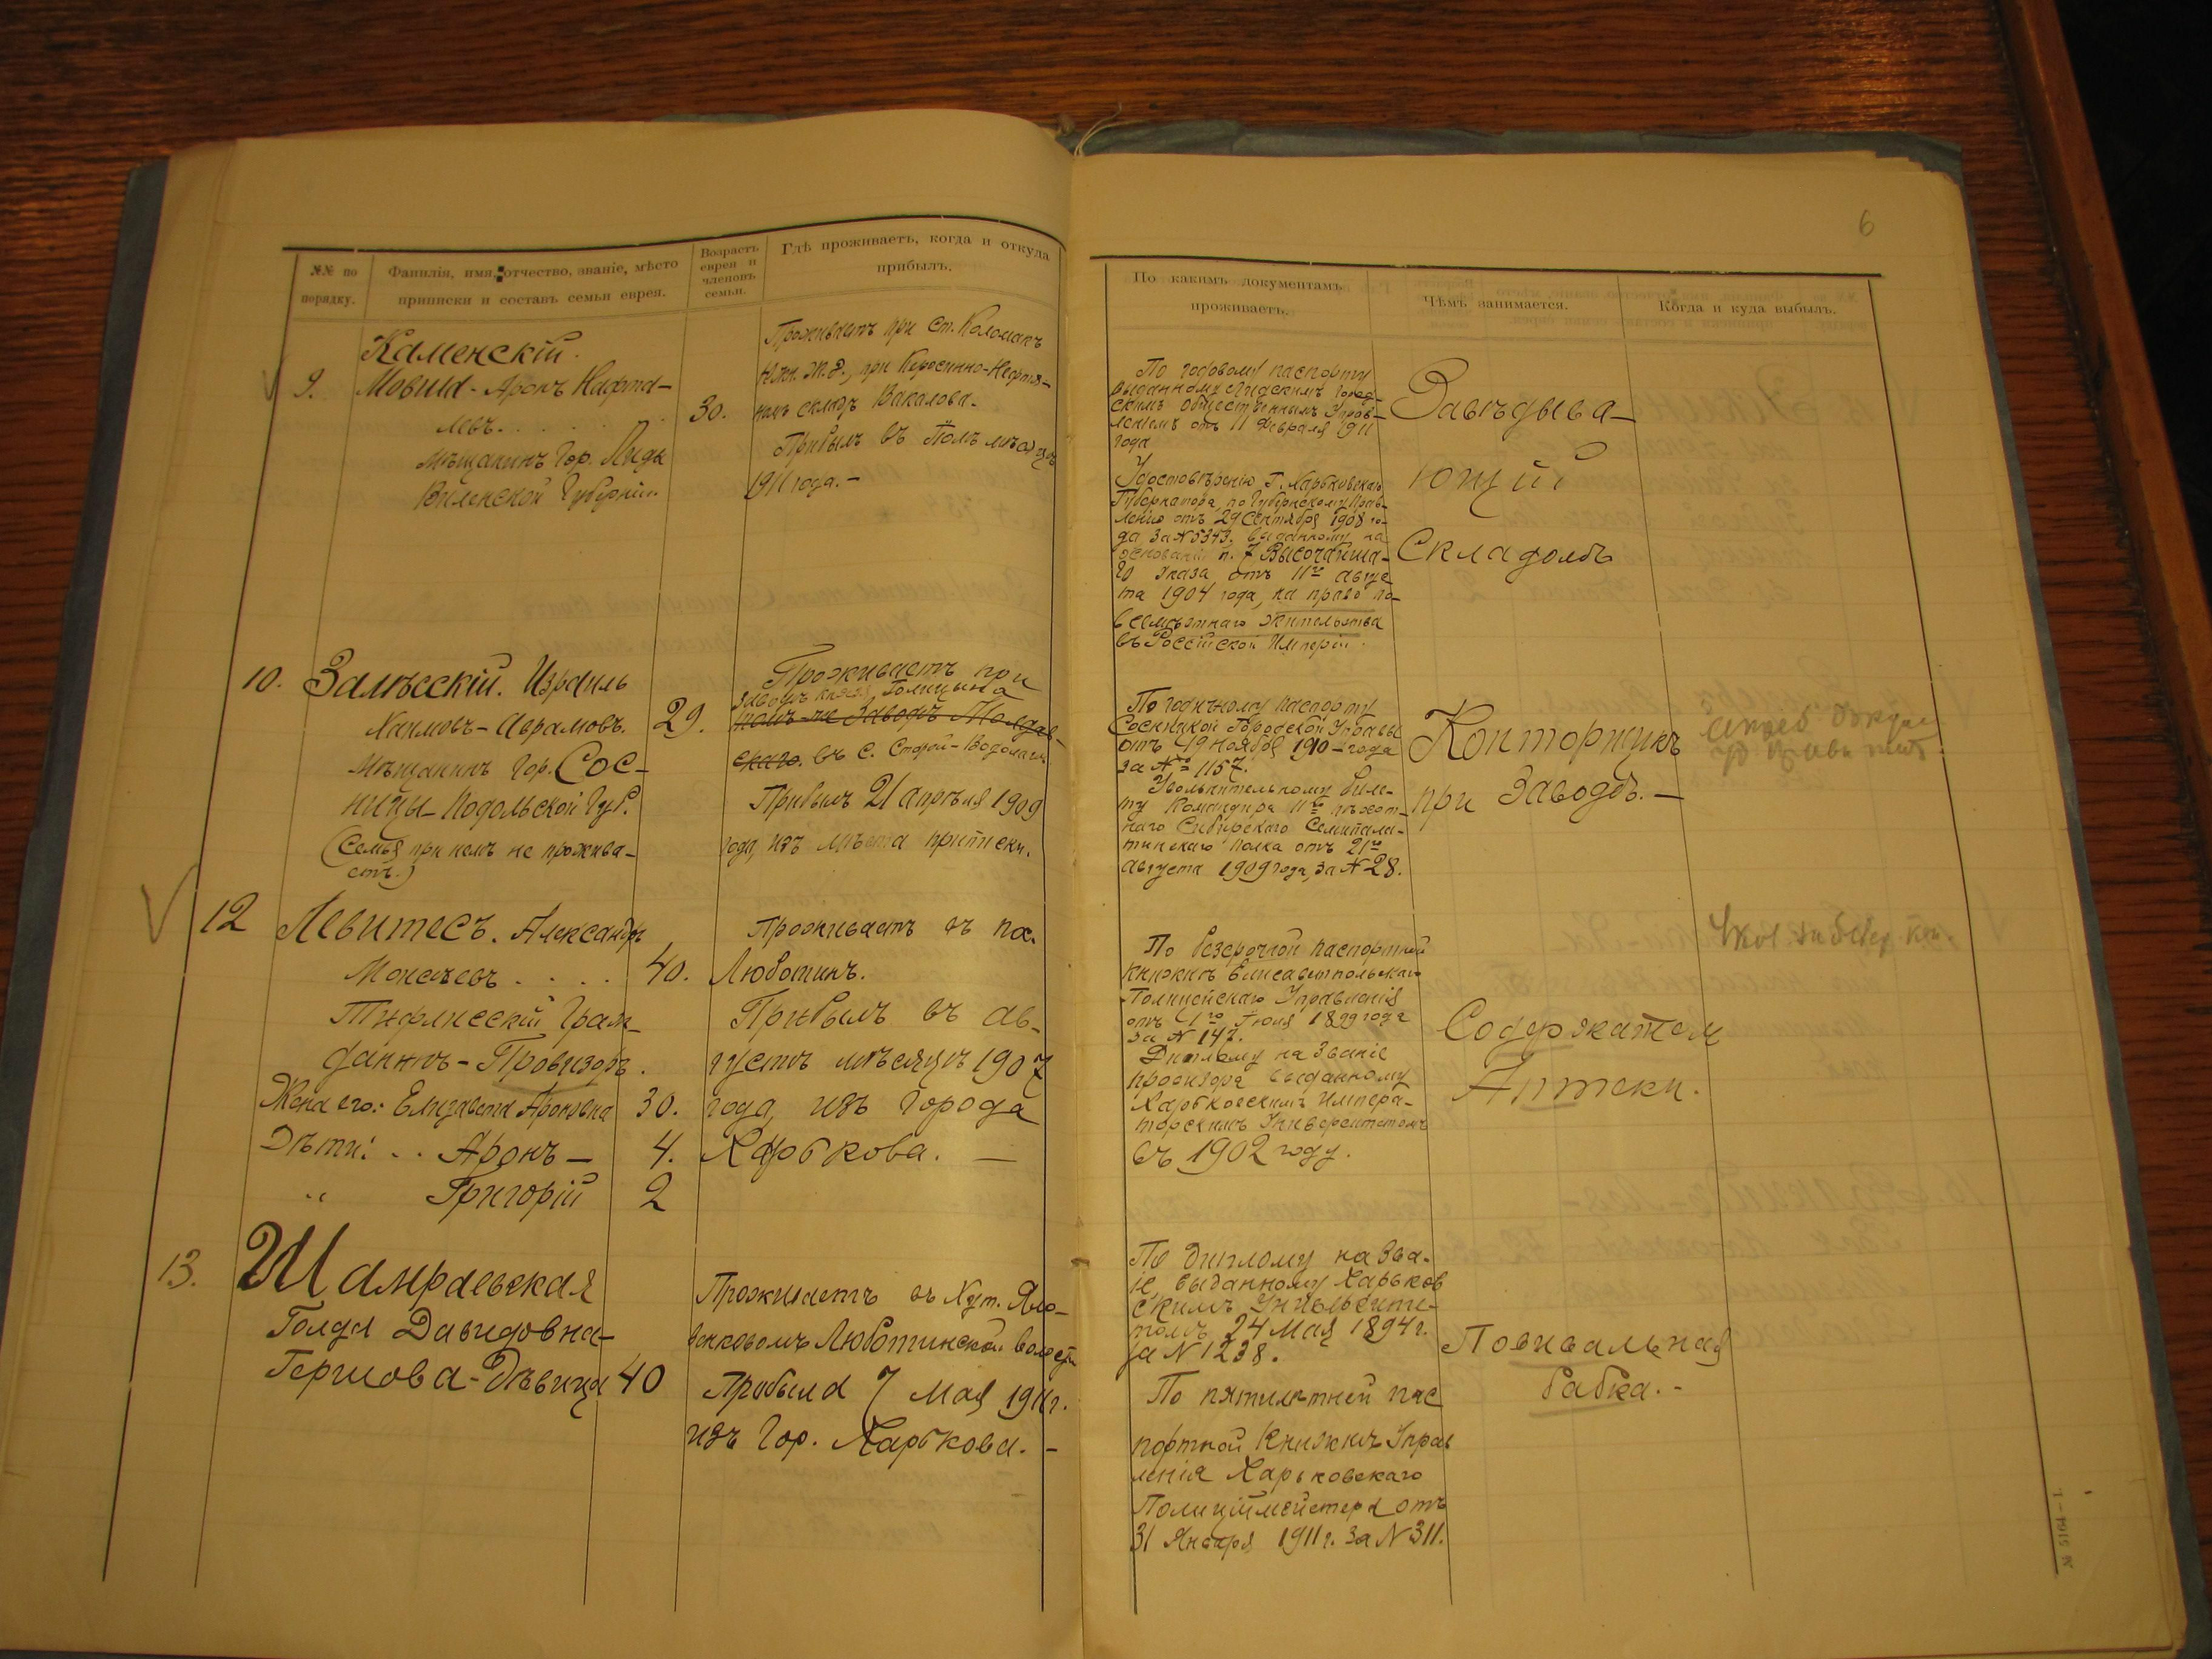 6
№№ по порядку.
Фамилія, имя, отчество, званіе, мѣсто
приписки и составъ семьи еврея.
Возрастъ
еврея и
членовъ
семьи.
Гдѣ проживаетъ, когда и откуда
прибылъ.
По какимъ документамъ
проживаетъ.
Чѣмъ занимается.
Когда и куда выбылъ.
9.
Каменскій.
Мовша-Аронъ Нафта-
левъ.
мѣщанинъ Гор. Лиды
Виленской Губерніи.
30.
Проживаетъ при Ст. Коломакъ
Южн. Ж. д., при Керосинно-Нефтя-
номъ складѣ Вакалова.
Прибылъ въ Іюлѣ мѣсяцѣ
1911 года. –
По годовому паспорту
выданному Лидскимъ Город-
скимъ Общественнымъ Управ-
леніемъ отъ 11 Февраля 1911
года
Удостовѣренію Г. Харьковскаго
Губернатора, по Губернскому Прав-
ленію отъ 29 Сентября 1908 го-
да за № 5343. выданному на
основаніи п. 7 Высочайша-
го Указа отъ 11го Авгус
та 1904 года, на право по-
всемѣстнаго жительства
въ Россійской Имперіи.
Завѣдыва-
ющій
Складомъ
10.
Залѣсскій. Израиль
Хаимовъ-Аврамовъ.
Мѣщанинъ Гор. Сос-
ницы-Подольской Губ.
(Семья при немъ не прожива-
етъ.)
29.
Проживаетъ при
Заводѣ князя Голицына
въ С. Старой-Водолагѣ.
Прибылъ 21 апрѣля 1909
года, изъ мѣста приписки.
По годичному паспорту
Сосницкой Городской Управы
отъ 19 Ноября 190– года
за № 1157.
Увольнительному биле-
ту Командира 11го пѣхот-
наго Сибирскаго Семипала-
тинскаго полка отъ 21го
августа 1909 года, за № 28.
Конторщикъ
при Заводѣ. –
12
Левитесъ. Александръ
Моисеевъ
Тифлисскій Граж-
данинъ-Провизоръ.
Жена его: Елизавета Ароновна
Дѣти: .. Аронъ –
" Григорій
40.
30.
4.
2
Проживаетъ въ пос.
Люботинъ.
Прибылъ въ ав-
густѣ мѣсяцѣ 1907
года, изъ Города
Харькова. –
По безсрочной паспортной
книжкѣ Елисаветпольскаго
Полицейскаго Управленія
отъ 1го Іюля 1899 года
за № 147.
Диплому на званіе
провизора выданному
Харьковскимъ Импера-
торскимъ Университетомъ
въ 1902 году.
Содержатель
Аптеки.
13.
Шамраевская
Голда Давидовна-
Гершова-Дѣвица
40
Проживаетъ въ Хут.
Люботинской волости
Прибыла 7 Мая 1911 г.
изъ Гор. Харькова. –
По диплому на Зва-
іе, выданному Харьков
скимъ Университе-
томъ 24 Мая 1894 г.
за № 1238.
По пятилѣтней пас
портной Книжкѣ Управ
ленія Харьковскаго
Полиціймейстера отъ
31 Января 1911 г. за № 311.
Повивальная
бабка. –
№ 5164 – 1.